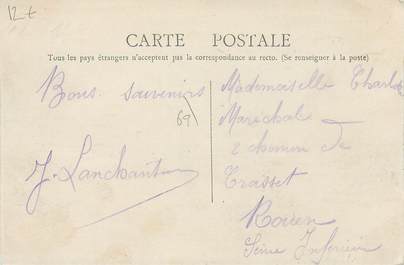 12 €
CARTE POSTALE
Tous les pays étrangers n'acceptent pas la correspondance au recto. (Se renseigner à la poste)
Bons souvenirs
69
Mademoiselle
Maréchal
2 chemin de
Rouen
Seine Inférieure